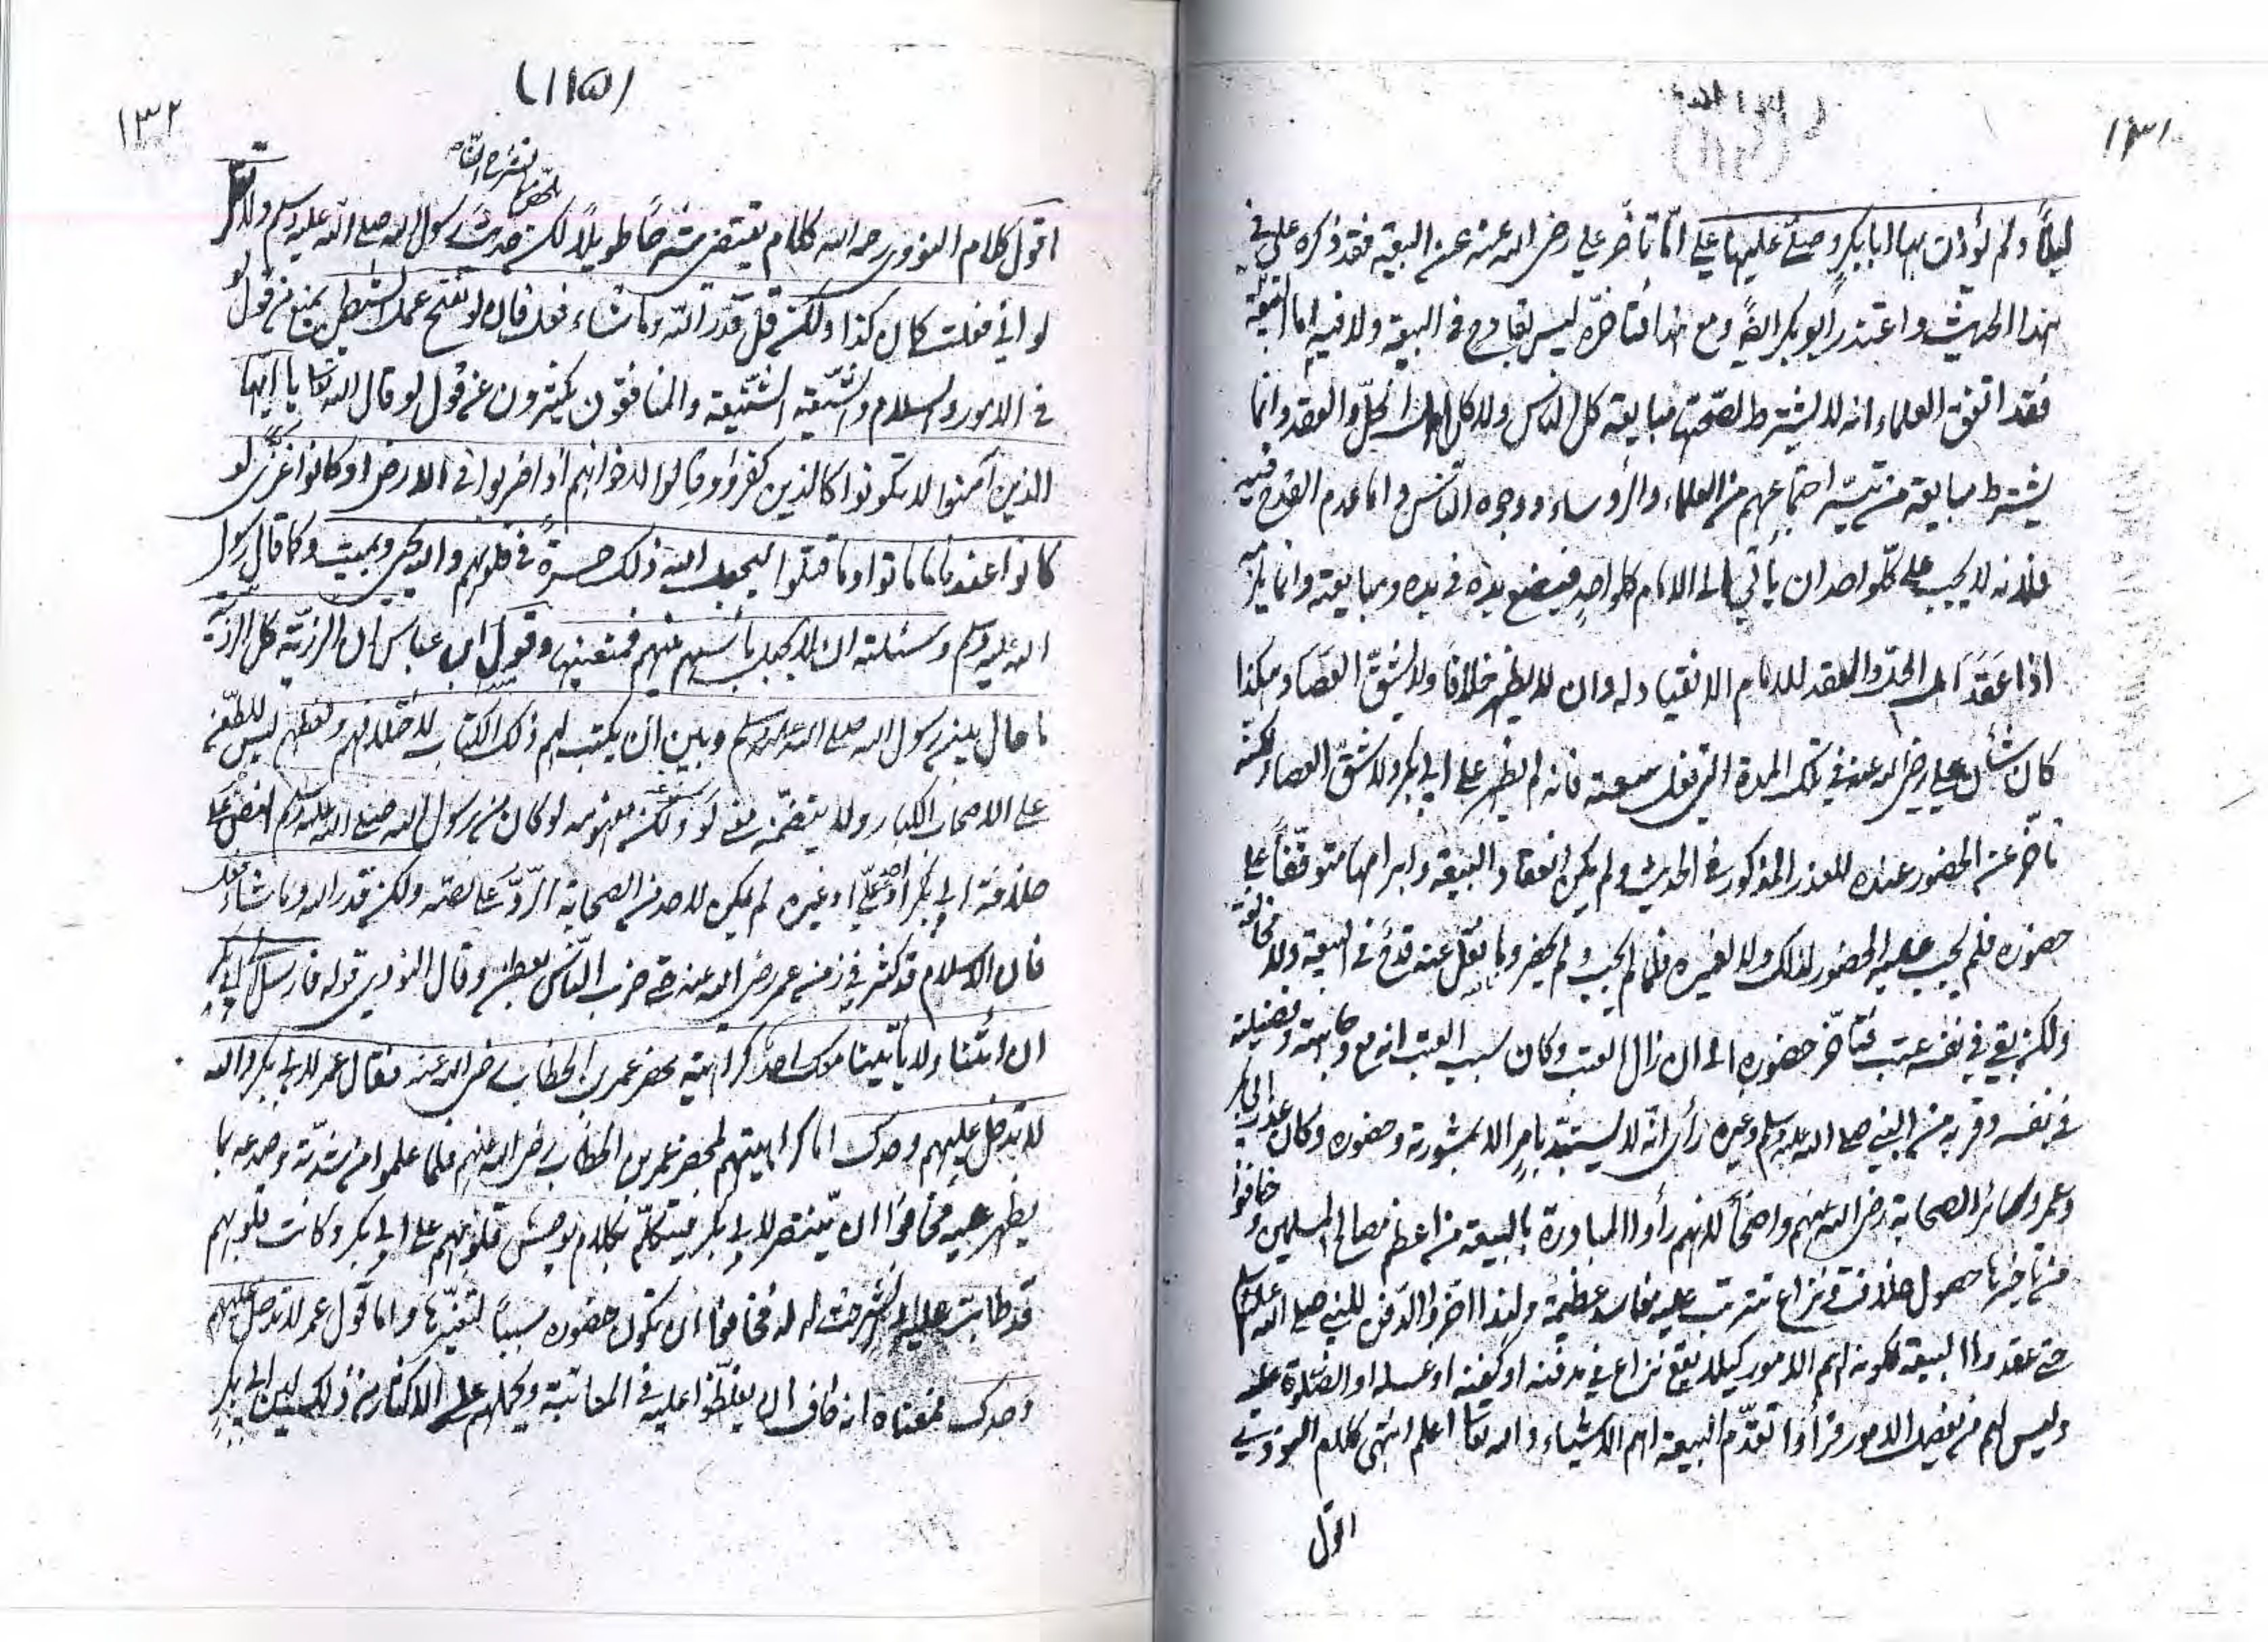 ١٣١
ليلاً ولم يؤذن بها ابا بكر وصلّى عليها علي امّا تأخّر علي رضي الله عنه عن البيعة فقد ذكره علي في
هذا الحديث واعتذر ابو بكر ايضاً ومع هذا فتأخّره ليس بقادح في البيعة ولا فيه اما البيعة
فقد اتفق العلماء انه لا يشترط لصحّتها مبايعة كل الناس ولا كل اهل الحلّ والعقد وانما
يشترط مبايعة من تيسّر اجتماعهم من العلماء والرؤساء ووجوه النّاس واما عدم القدح فيه
فلأنه لا يجب على كلّ واحد ان يأتي الى الامام كل واحدٍ فيضع يده في يده ويبايعه وانما يلزمه
اذا عَقَدَ اهل الحل والعقد للامام الانقياد له وان لا يظهر خلافاً ولا يشقّ العصا وهكذا
كان شأن علي رضي الله عنه في تلك المدة التي قبل بيعته فانه لم يظهر على ابي بكر ولا شقّ العصا ولكنّه
تأخّر عن الحضور عنده للعذر المذكور في الحديث ولم يكن انعقاد البيعة وابرامها متوقّفاً على
حضوره فلم يجب عليه الحضور لذلك ولا لغيره فلما لم يجب لم يحضر وما نقل عنه قدحٌ في البيعة ولا مخالفة
ولكن بقي في نفسه عتب فتأخّر حضوره الى ان زال العتب وكان سبب العتب انه مع وجاهته وفضيلته
في نفسه وقربه من النبي صلى الله عليه وسلم وغيره رأى انّه لا يستبدّ بامرٍ الا بمشورته وحضوره وكان عذر ابي بكر
وعمر وسائر الصحابة رضي الله عنهم واضحاً لانهم رأوا المبادرة بالبيعة من اعظم مصالح المسلمين وخافوا
من تأخيرها حصول خلافٍ ونزاع تترتب عليه مفاسد عظيمة ولهذا اخّروا الدّفن للنبي صلى الله عليه وسلم
حتى عقدوا البيعة لكونه اهم الامور كيلا يقع نزاع في مدفنه او كفنه او غسله او الصّلاة عليه
وليس لهم من يفصل الامور فرأوا تقدّم البيعة اهم الاشياء والله تعالى اعلم انتهى كلام النووي
اقول
١٣٢
(١١٥)
اقول كلام النووي رحمه الله كلام يقتضى شرحاً طويلاً لكن حديث رسول الله صلى الله عليه وسلم ولا تقل
لو اني فعلت كان كذا ولكن قل قدّر الله وما شاء فعل فان لو تفتح عمل الشيطان يمنع من قول لو
في الامور والسلام والشّيعة الشّنيعة والمنافقون يكثرون عن قول لو قال الله تعالى يا ايّها
الذين آمنوا لا تكونوا كالذين كفروا وقالوا لاخوانهم اذا ضربوا في الارض او كانوا غزّى لو
كانوا عندنا ما ماتوا وما قتلوا ليجعل الله ذلك حسرةً في قلوبهم والله يحيى ويميت وكما قال رسول
الله عليه وسلم وسئلته ان لا يجعل بأسهم بينهم فمنعنيها وقول ابن عباس ان الرزيّة كل الرزيّة
ما حال بين رسول الله صلى الله عليه وسلم وبين ان يكتب لهم ذلك الكتاب لاختلافهم ولغطهم ليس للطّعن
على الاصحاب الكبار ولا يتضمّن معنى لو ولكن مفهومه لو كان من رسول الله صلى الله عليه وسلم نص على
خلافة ابي بكر او علي او غيره لم يكن لاحد من الصحابة الردّ على نصّه ولكن قدر الله وما شاء فعل
فان الاسلام قد كثر في زمن عمر رضي الله عنه حتى ضرب النّاس بعطن وقال النووي قوله فارسل الى ابي بكر
ان ائتنا ولا يأتينا معك احد كراهية محضر عمر بن الخطاب رضي الله عنه فقال عمر لابي بكر والله
لا تدخل عليهم وحدك اما كراهيتهم لمحضر عمر بن الخطاب رضي الله عنهم فلما علموا من شدّته وصدعه بما
يظهر عليه فخافوا ان ينتصر لابي بكر فيتكلّم بكلام يوحش قلوبهم على ابي بكر وكانت قلوبهم
قد طابت عليه وانشرحت له فخافوا ان يكون حضوره سبباً لتغيّرها واما قول عمر لا تدخل عليهم
وحدك فمعناه انه خاف ان يغلّظوا عليه في المعاتبة ويحملهم على الاكثار من ذلك لين ابي بكر